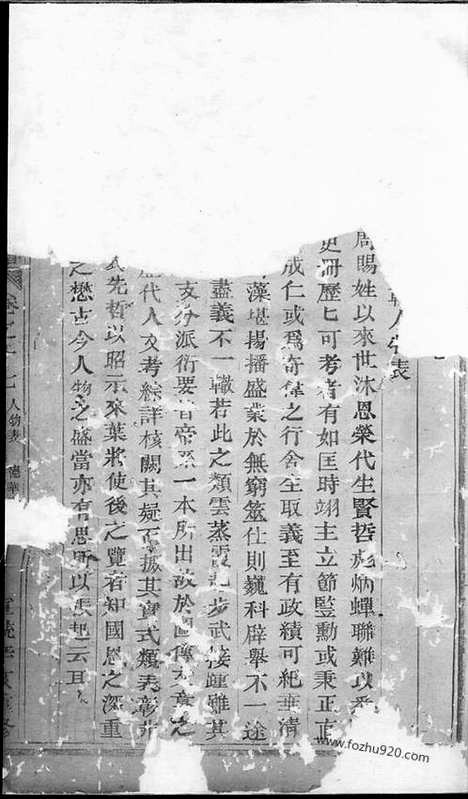 人物表
周賜姓以來世沐恩榮代生賢哲彪炳蟬聯難以悉
史冊歷歷可考者有如匡時翊主立節豎勳或秉正直
成仁或爲奇偉之行舍生取義至有政績可紀垂清
藻堪揚播盛業於無窮筮仕則巍科辟舉不一途
盡義不一轍若此之類雲蒸霞 步武接踵雖其
支分派衍要皆帝系一本所出故於圖傳 之
代人文考綜詳核闕其疑 據其實式類表彰
先哲以昭示來葉將使後之覽者知國恩之深重
之懋古今人物之盛當亦有思所以 起云耳
卷之 七 人物表
www.fozhu920.com